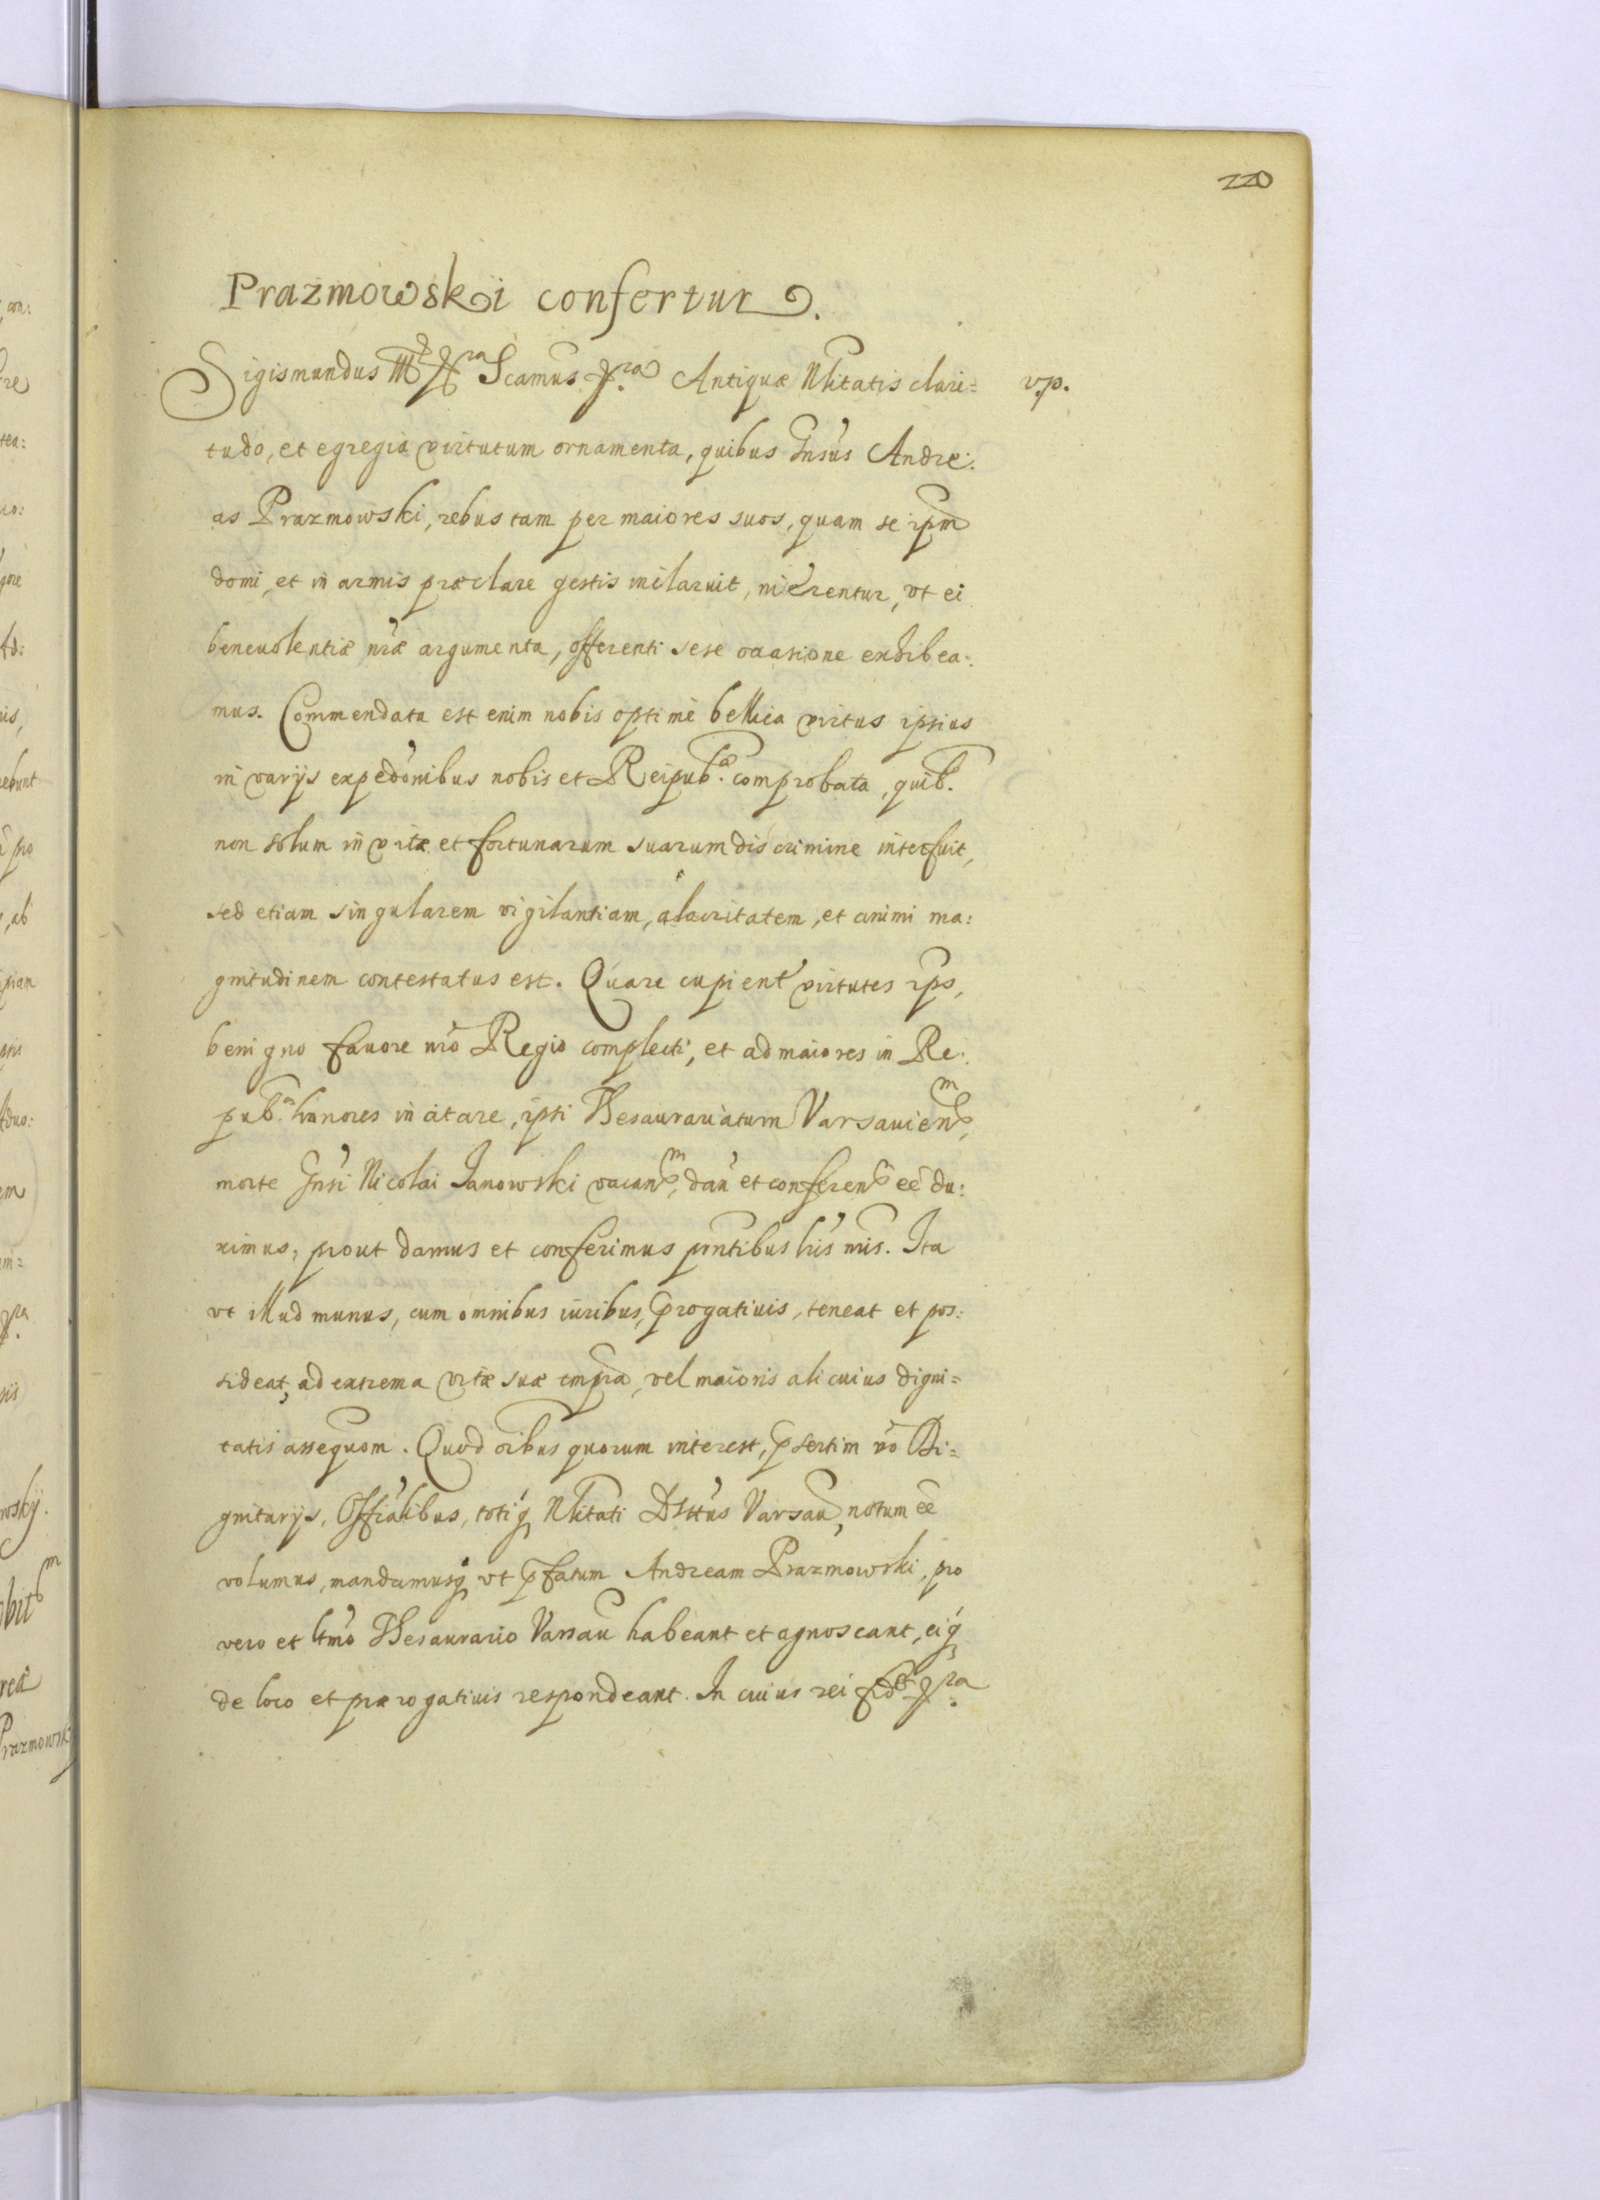 220
Prazmowski confertur.
Sigismundus III etcra Scamus etcra Antiquæ Nlitatis clari=
v.p.
tudo, et egregia virtutum ornamenta, quibus Gnsus Andre:
as Prazmowski, rebus tam per maiores suos, quam se ipm
domi, et in armis præclare gestis inclaruit, merentur, vt ei
beneuolentiæ nræ argumenta, offerenti sese occasione exhibea:
mus. Commendata est enim nobis optimè bellica virtus ipsius
in varijs expedonibus nobis et Reipub. comprobata, quib.
non solum in vitæ et fortunarum suarum discrimine interfuit,
sed etiam singularem vigilantiam, alacritatem, et animi ma:
gnitudinem contestatus est. Quare cupient virtutes ips,
benigno fauore nro Regio complecti, et ad maiores in Re:
pub. honores incitare, ipsi Thesaurariatum Varsauien,
morte Gnsi Nicolai Janowski vacan, dan et conferen eē du:
ximus, prout damus et conferimus pntibus lris nris. Ita
vt illud munus, cum omnibus iuribus, progatiuis, teneat et pos:
sideat, ad extrema vitæ suæ tmpra, vel maioris alicuius digni=
tatis assequom. Quod oibus quorum interest, psertim vo Di=
gnitarijs, Offialibus, totiq Nlitati Dsttus Varsau, notum eē
volumus, mandamusq vt pfatum Andream Prazmowski, pro
vero et ltmo Thesaurario Varsau habeant et agnoscant, eiq
de loco et prærogatiuis respondeant. In cuius rei fid etcra